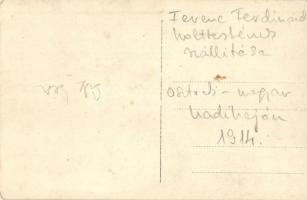 Ferenc Ferdinánd
holttestének
szállítása
osztrák-magyar
hadihajón
1914.